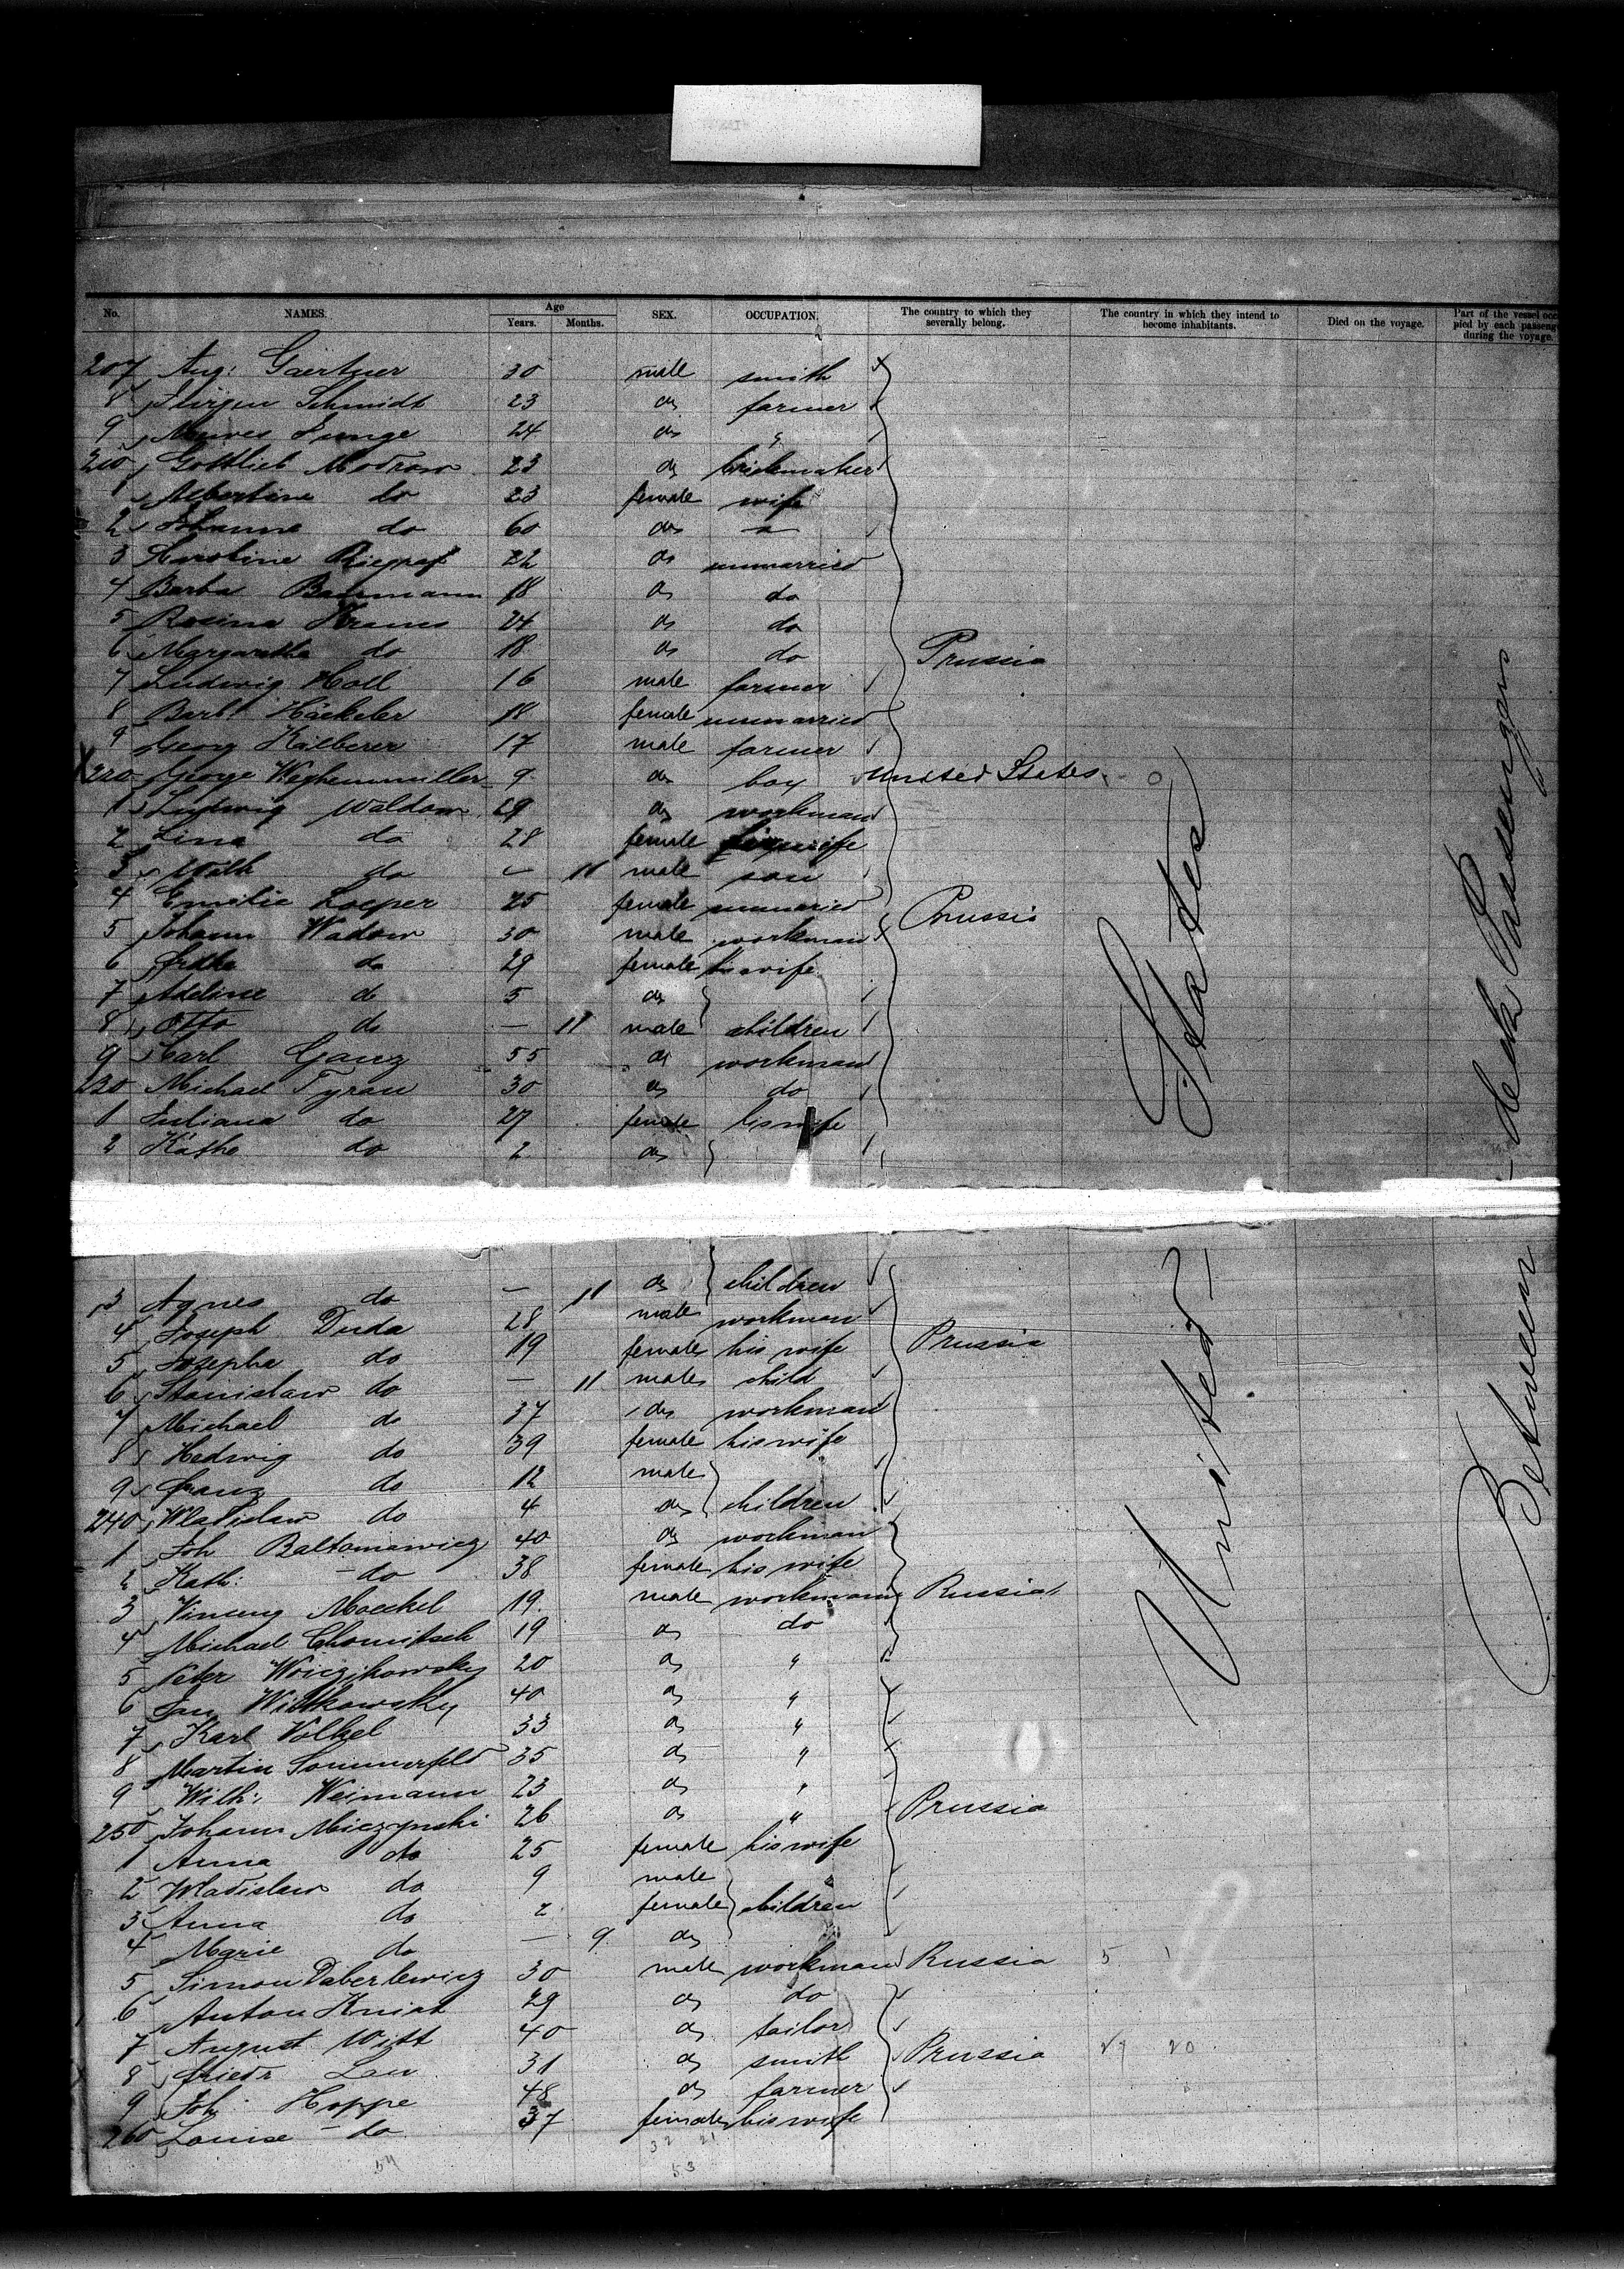 No. NAMES. Age Years. Months. SEX. OCCUPATION. The country to which they severally belong. The country in which they intend to become inhabitants. Died on the voyage. Part of the vessel occupied by each passenger during the voyage.
207 Aug: Gaertner 30 male smith
8 Jürgen Schmidt 23 do farmer
9 Meuves Junge 24 do "
210 Gottlieb Modrow 23 do brickmaker
1 Albertine do 23 female wife
2 Johanne do 60 do
3 Karoline 22 do unmarried
4 Barba 18 do do
5 Rosina Kraus 24 do do
6 Margaretha do 18 do do Prussia
7 Ludwig Holl 16 male farmer
8 Barb: Häckeler 18 female unmarried
9 Georg Kälberer 17 male farmer
220 George Weghenmüller 9 do boy United States
1 Ludwig Waldow 29 do workman
2 Lina do 28 female wife
3 do — 11 male son
4 Emilie Loeper 25 female unmaried Prussia
5 Johann Wadow 30 male workman
6 do 29 female his wife
7 Adeline do 5 do
8 Otto do — 11 male children
9 Karl Ganz 55 do workman
230 Michael Tyrau 30 do do
1 Juliana do 27 female his wife
2 Käthe do 2 do
3 Agnes do — 11 do children
4 Joseph Duda 28 male workman
5 Josepha do 19 female his wife Prussia
6 Stanislaw do — 11 male child
7 Michael do 37 do workman
8 Hedwig do 39 female his wife
9 Franz do 12 male
240 Wladislaw do 4 do children
1 Joh Baltomiewicz 40 do workman
2 Kath: do 38 female his wife
3 Vincenz Moeckel 19 male workman Russia
4 Michael Chomitsch 19 do do
5 Peter Woiczikowsky 20 do "
6 Jan Wittkowsky 40 do "
7 Karl Völkel 33 do "
8 Martin Sommerfeld 35 do "
9 Wilh: Weimann 23 do "
250 Johann Miczynski 26 do " Prussia
1 Anna do 25 female his wife
2 Wladislaw do 9 male
3 Anna do 2 female children
4 Marie do — 9 do
5 Simon Daberlewicz 30 male workman Russia 5 1
6 Anton Kniat 29 do do
7 August Witt 40 do tailor
8 Friedr Lau 31 do smith Prussia 27 20
9 Joh Hoppe 48 do farmer
260 Louise do 37 female his wife
54 32 21
53
United States
Between deck Passengers